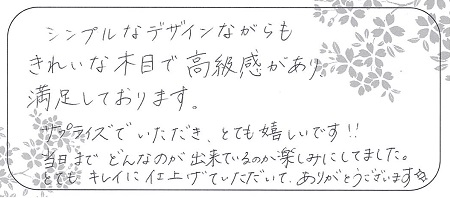 シンプルなデザインながらも
きれいな木目で高級感があり、
満足しております。
サプライズでいただき、とても嬉しいです!!
当日までどんなのが出来ているのか楽しみにしてました。
とてもキレイに仕上げていただいて、ありがとうございます